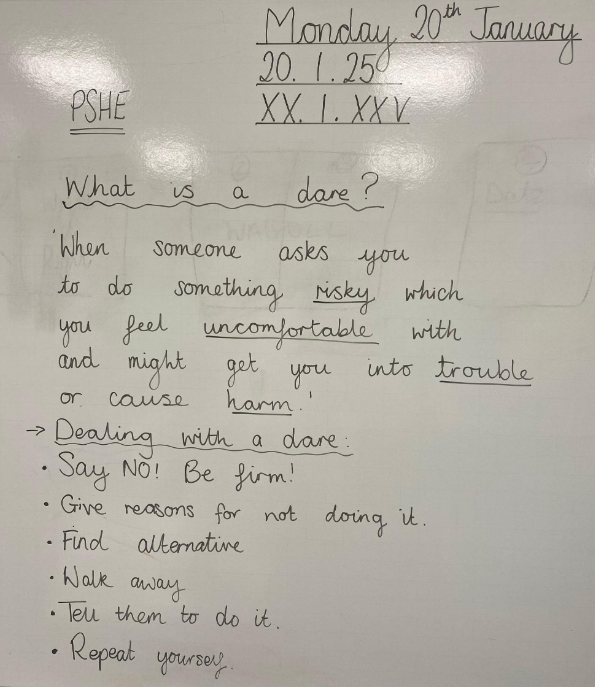 Monday 20th January
20. 1. 25
PSHE
XX. I. XXV
What is a dare?
'When someone asks you
to do something risky which
you feel uncomfortable with
and might get you into trouble
or cause harm.'
→ Dealing with a dare:
• Say NO! Be firm!
• Give reasons for not doing it.
• Find alternative
• Walk away
• Tell them to do it.
• Repeat yourself.